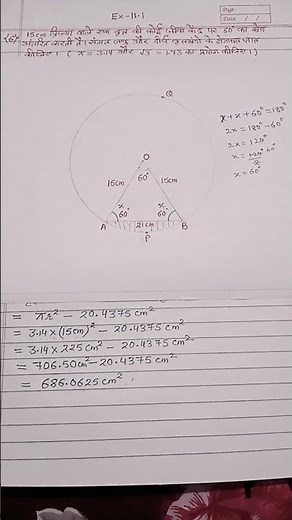 Ex-11.1
Page
Date / /
(6) 15cm त्रिज्या वाले एक वृत्त की कोई जीवा केंद्र पर 60° का कोण
अंतरित करती है। संगत लघु और दीर्घ वृत्तखंडो के क्षेत्रफल ज्ञात
कीजिए। ( π = 3.14 और √3 = 1.73 का प्रयोग कीजिए।)
Q
x + x + 60° = 180°
2x = 180° - 60°
2x = 120°
x = 120°/2 60°
x = 60°
O
60°
15cm 15cm
x x
60° 60°
A 21cm B
P
= πr² - 20.4375 cm²
= 3.14 × (15cm)² - 20.4375 cm²
= 3.14 × 225 cm² - 20.4375 cm²
= 706.50 cm² - 20.4375 cm²
= 686.0625 cm²